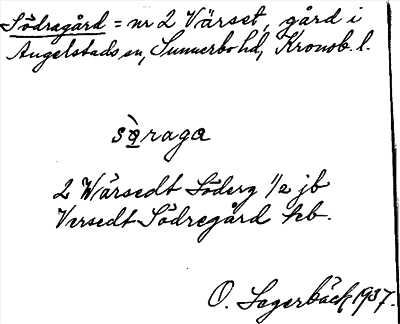 Södragård = nr 2 Värset, gård i
Angelstads sn, Sunnerbo hd, Kronob. l.
sö̀raga
2 Wärsedt Söderg 1/2 jb
Versedt Södregård hb.
O. Lagerbäck 1937.